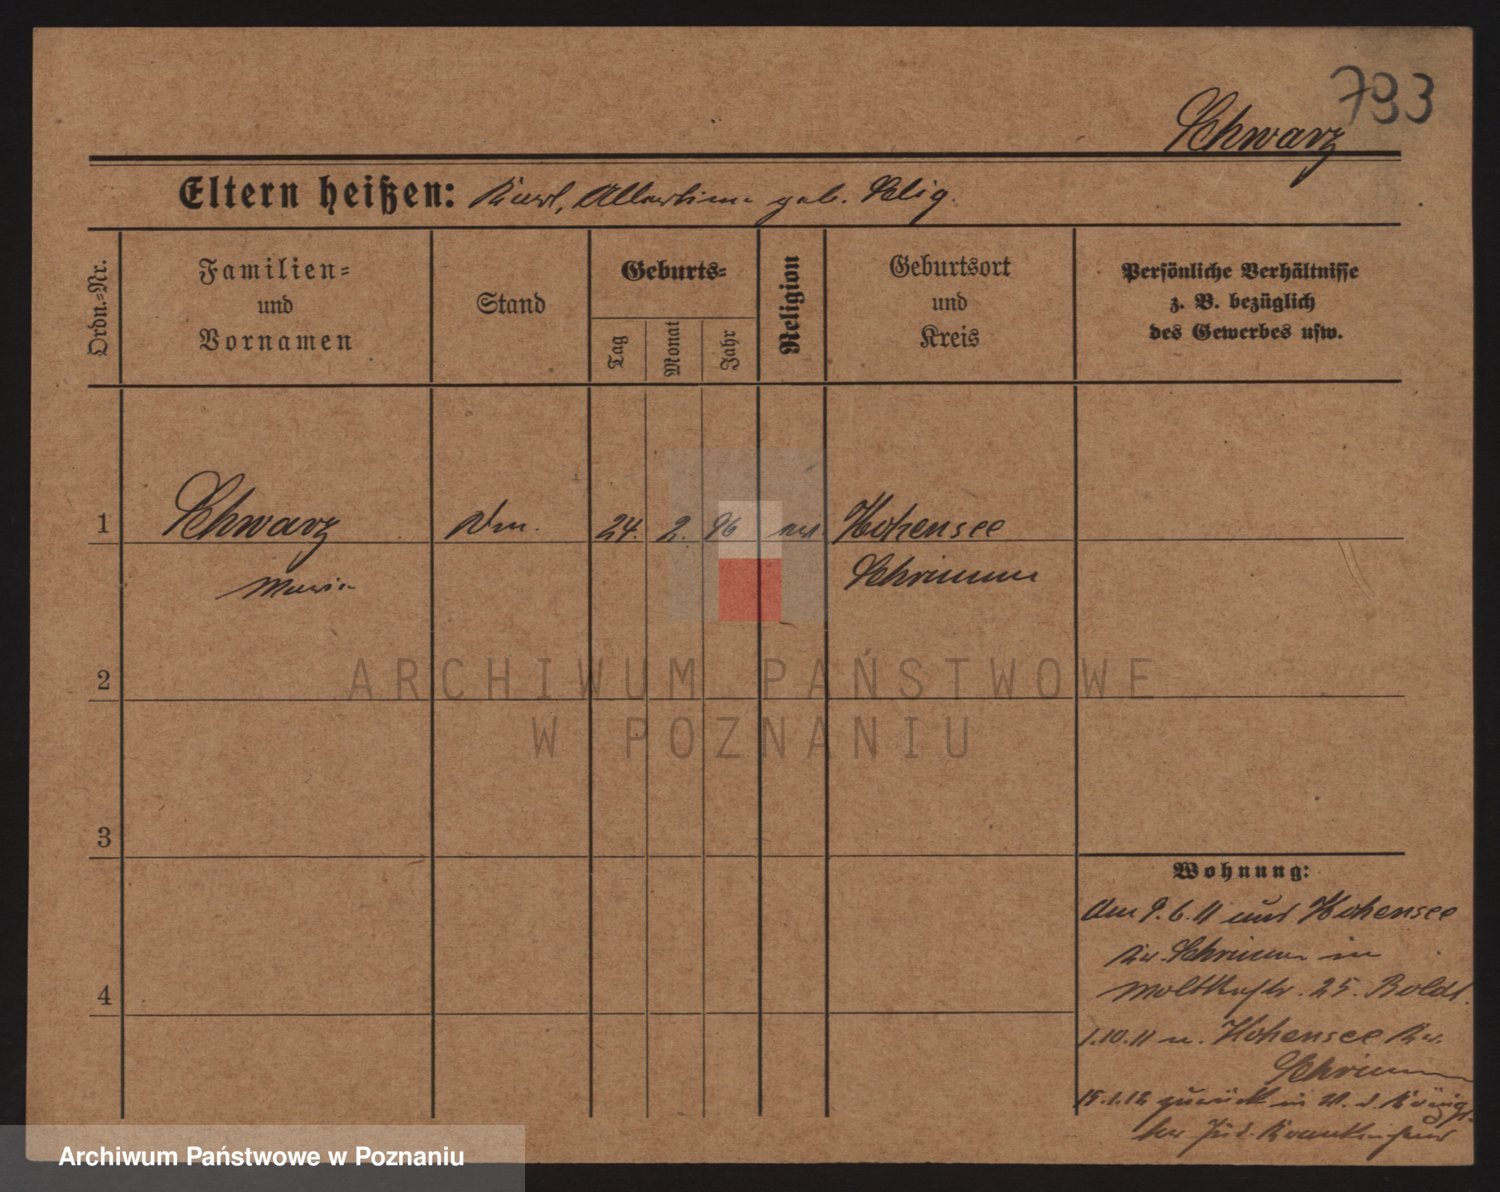 793
Schwarz
Eltern heißen: Karl, Albertine geb. Selig.
Ordn.=Nr.
Familien=
und
Vornamen
Stand
Geburts=
Tag
Monat
Jahr
Religion
Geburtsort
und
Kreis
Persönliche Verhältnisse
z. B. bezüglich
des Gewerbes usw.
1
Schwarz
24. 2. 96
Hohensee
Maria
Schrimm
2
ARCHIWUM PAŃSTWOWE
W POZNANIU
3
Wohnung:
Am 9.6.11 aus Hohensee
Kr. Schrimm in
Moltkestr. 25. Boldt.
4
1.10.11 n. Hohensee Kr.
Schrimm
15.1.12 zurück in
Jüd. Krankenhaus
Archiwum Państwowe w Poznaniu